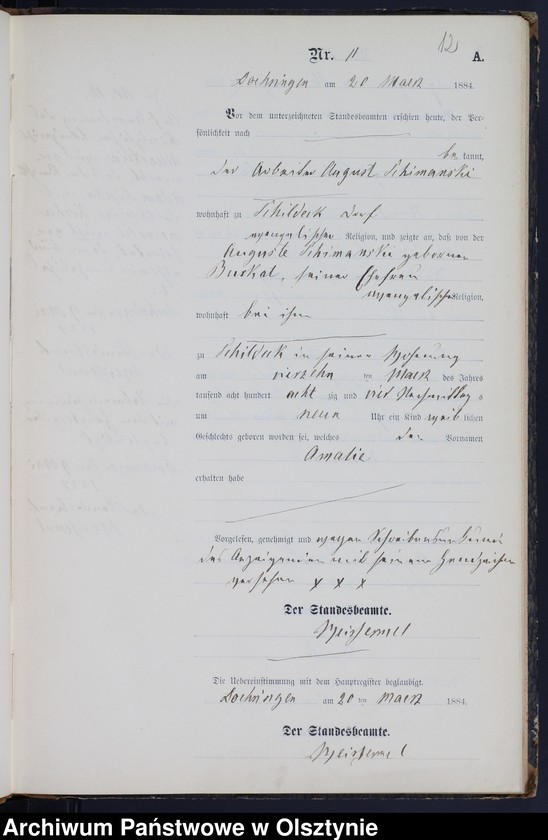 12
Nr. 11 A.
Doehringen am 20 Maerz 1884.
Vor dem unterzeichneten Standesbeamten erschien heute, der Per-
sönlichkeit nach
be kannt,
der Arbeiter August Schimanski
wohnhaft zu Schildeck Dorf
evangelischer Religion, und zeigte an, daß von der
Auguste Schimanski geborenen
Buskat, seiner Ehefrau
evangelischer Religion,
wohnhaft bei ihm
zu Schildeck in seiner Wohnung
am vierzehn ten Maerz des Jahres
tausend acht hundert acht zig und vier Nachmittag s
um neun Uhr ein Kind weib lichen
Geschlechts geboren worden sei, welches den Vornamen
Amalie
erhalten habe
Vorgelesen, genehmigt und wegen Schreibensunkunde
des Anzeigenden mit seinem Handzeichen
versehen x x x
Der Standesbeamte.
Die Uebereinstimmung mit dem Hauptregister beglaubigt.
Doehringen am 20 ten Maerz 1884.
Der Standesbeamte.
Archiwum Państwowe w Olsztynie